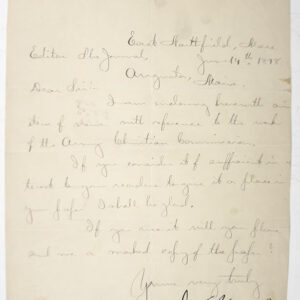 East Northfield, Mass
Editor The Journal, June 14th 1898
Augusta, Maine.
Dear Sir:-
I am enclosing herewith an
item of news with reference to the work
of the Army Christian Commission.
If you consider it of sufficient in-
terest to your readers to give it a place in
your paper I shall be glad.
If you use it will you please
send me a marked copy of the paper?
Yours very truly